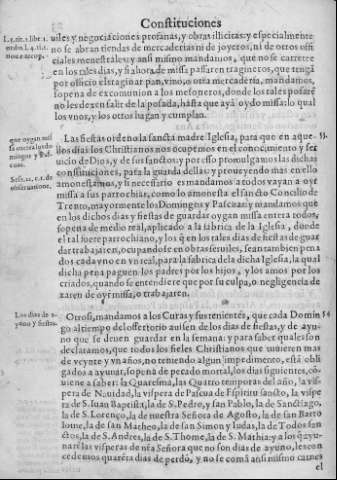 Constituciones
uiles y negociaciones profanas, y obras illicitas: y especialmente
no se abran tiendas de mercaderias ni de joyeros, ni de otros offi
ciales menestrales: y ansi mismo mandamos, que no se carreteen
en los tales dias, y si a hora de missa passaren tragineros, que tengã
por officio el traginar pan, vino, o otra mercaderia, mandamos,
sopena de excomunion a los mesoneros, donde los tales posarẽ
no les dexen salir de la posada, hasta que aya oydo missa: lo qual
los vnos, y los otros hagan y cumplan.
Las fiestas ordeno la sancta madre Iglesia, para que en aque
llos dias los Christianos nos ocupemos en el conocimiento y ser
uicio de Dios, y de sus sanctos: y por esso promulgamos las dichas
constituciones, para la guarda dellas: y proueyendo mas en ello
amonestamos, y si necessario es mandamos a todos vayan a oyr
missa a sus parrochias, como lo amonesta el sancto Concilio de
Trento, mayormente los Domingos y Pascuas: y mandamos que
en los dichos dias y fiestas de guardar oygan missa entera todos,
sopena de medio real, aplicado a la fabrica de la Iglesia, donde
el tal fuere parrochiano, y los q̃ en los tales dias de fiestas de guar
dar trabajaren, ocupandose en obras seruiles, sean tambien pena
dos cada vno en vn real, para la fabrica de la dicha Iglesia, la qual
dicha pena paguen los padres por los hijos, y los amos por los
criados, quando se entendiere que por su culpa, o negligencia de
xaren de oyr missa, o trabajaren.
Otrosi, mandamos a los Curas y sus tenientes, que cada Domin
go al tiempo del offertorio auisen de los dias de fiestas, y de ayu-
no que se deuen guardar en la semana: y para saber quales son
declaramos, que todos los fieles Christianos que vuieren mas
de veynte y vn años, no teniendo algun impedimento, está obli
gados a ayunar, sopena de pecado mortal, los dias siguientes, cõ-
uiene a saber: la Quaresma, las Quatro temporas del año, la vis-
pera de Nauidad, la vispera de Pascua de Espiritu sancto, la vispe
ra de S. Iuan Baptista, la de S. Pedro, y san Pablo, la de Sanctiago,
la de S. Lorenço, la de nuestra Señora de Agosto, la de san Barto
lome, la de san Matheo, la de san Simon y Iudas, la de Todos san
ctos, la de S. Andres, la de S. Thome, la de S. Mathia: y a los q̃ ayu-
nare las visperas de nrã Señora que no son dias de ayuno, les con
cedemos quarẽta dias de perdõ, y no se coma ansi mismo carnes
el
53
54
Los dias de a-
yuno y fiestas.